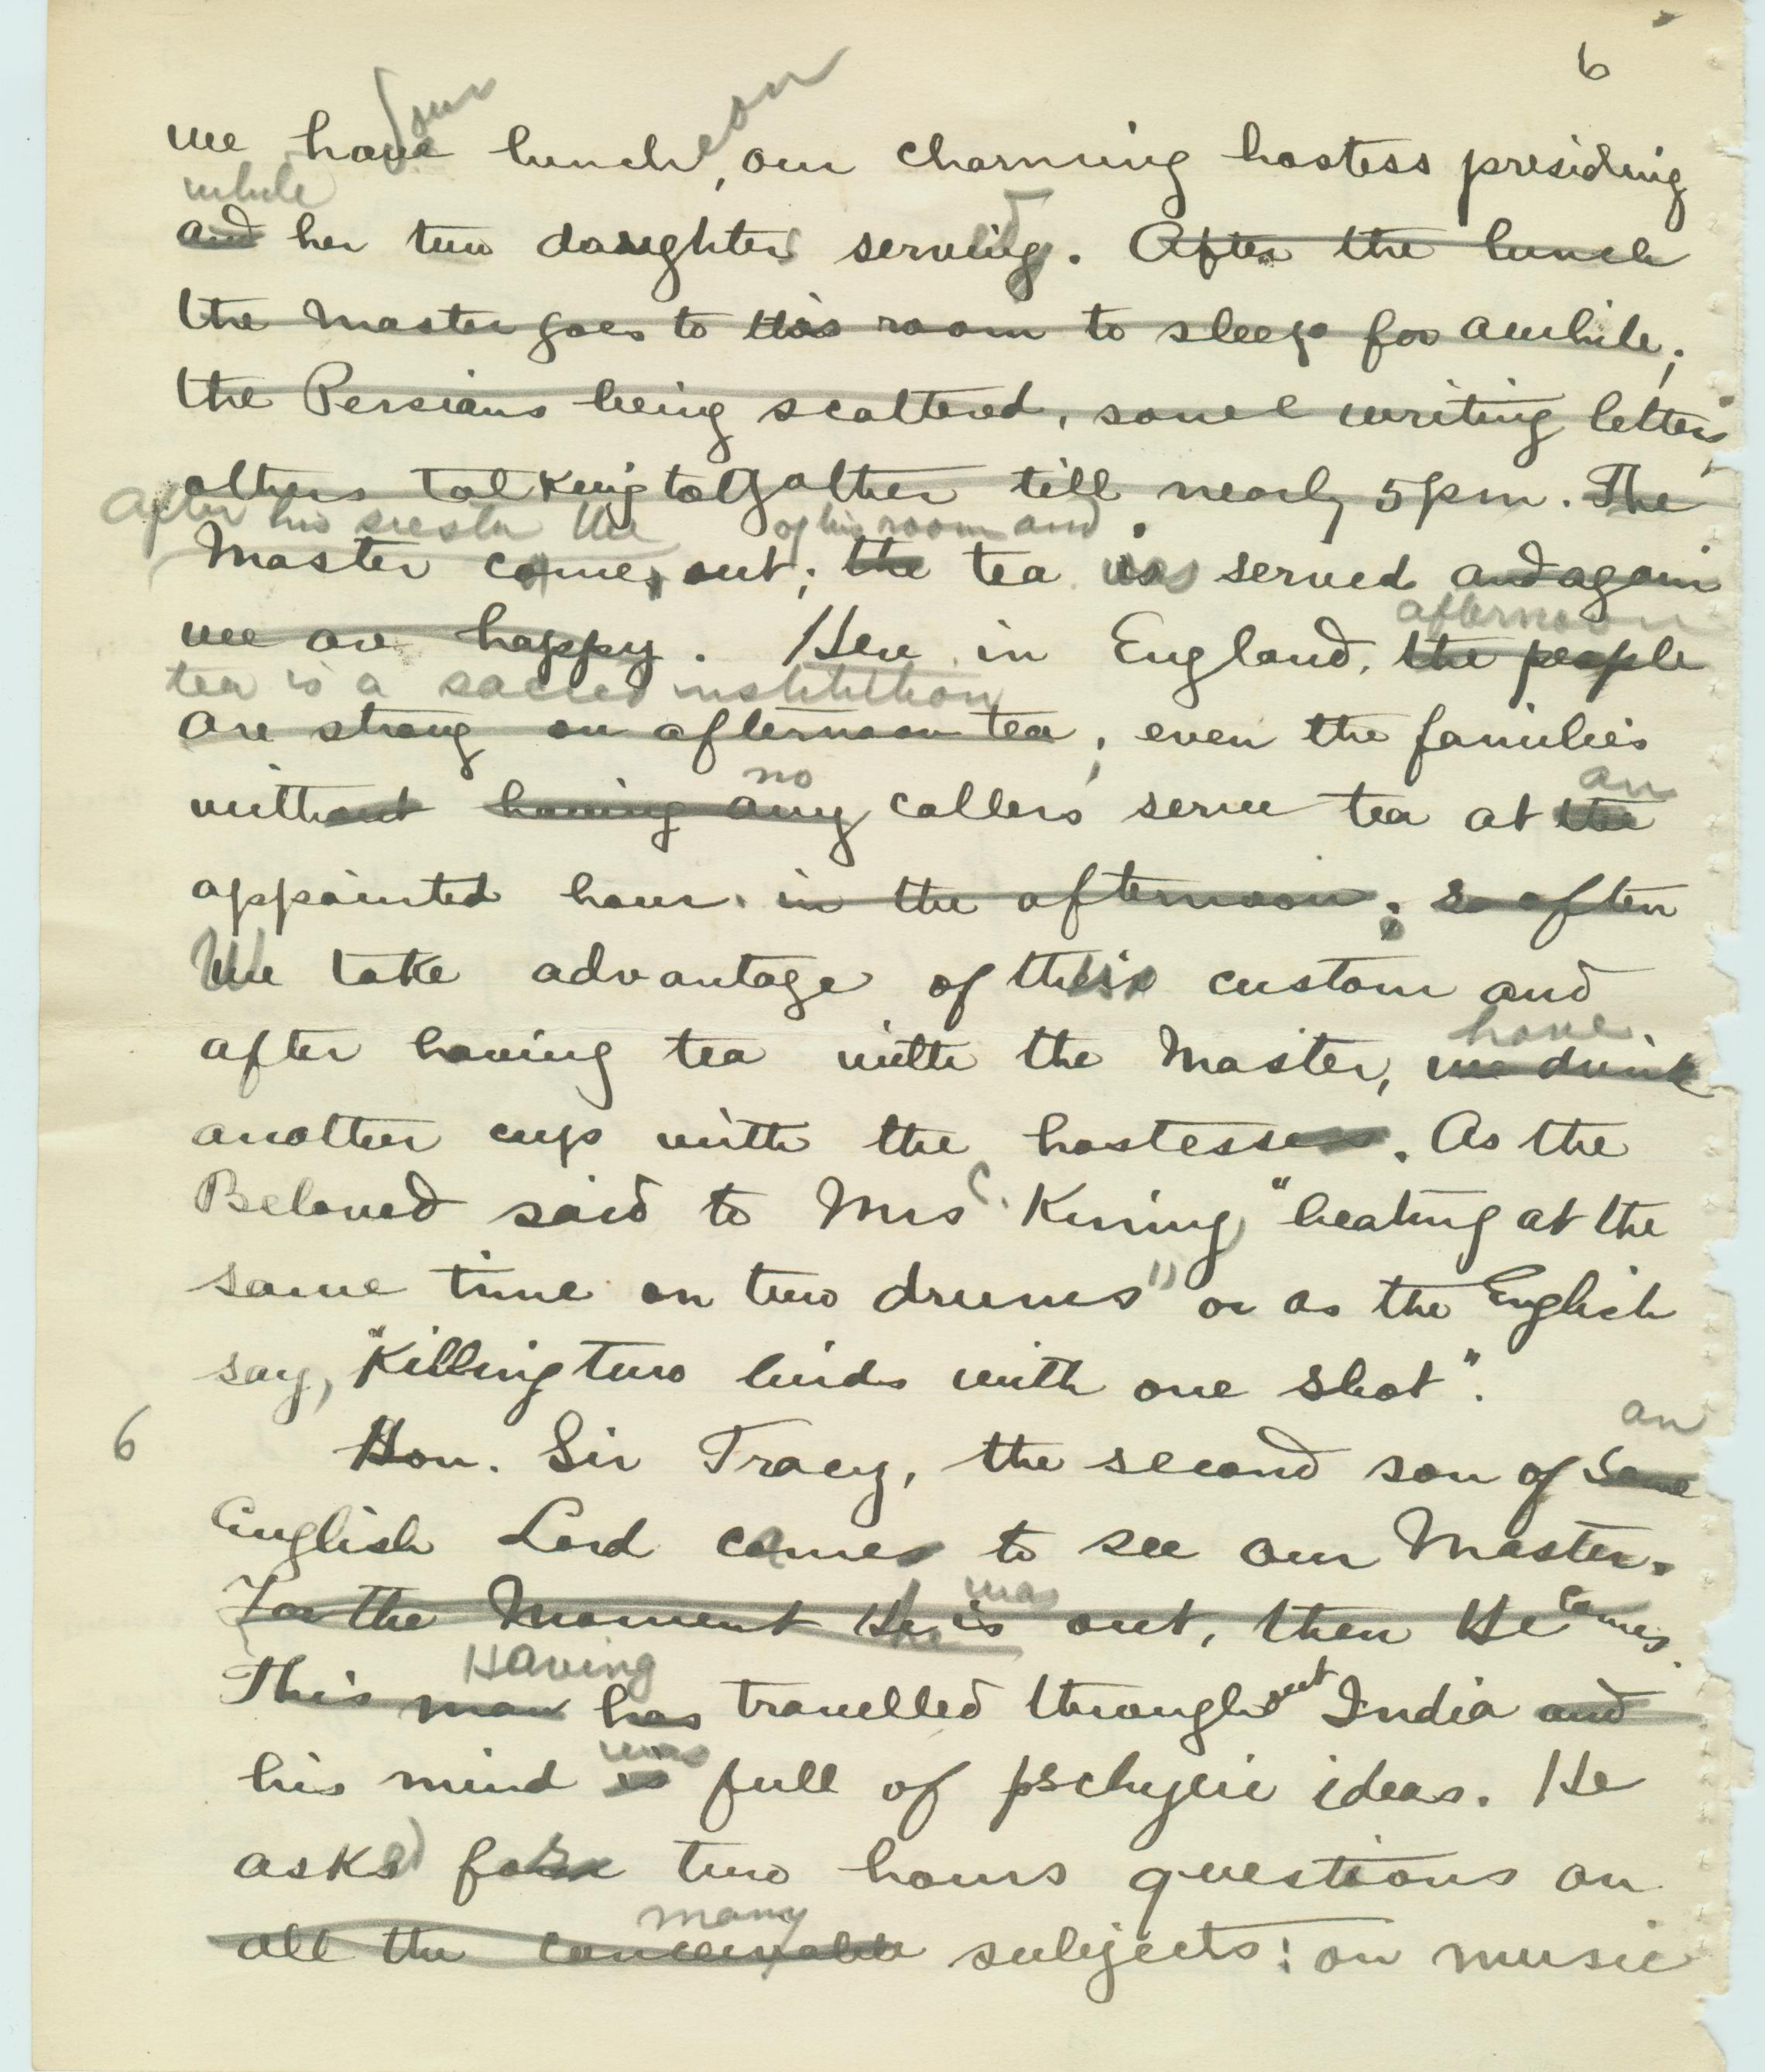 6
we have our luncheon, our charming hostess presiding
while
and her two daughters serving. After the lunch
the Master goes to his room to sleep for awhile;
the Persians being scattered, some writing letters,
others talking togather till nearly 5 p m. The
After his siesta the of his room and
Master comes out; the tea is was served and again
afternoon
we are happy. Here in England, the people
tea is a sacred institution
are strong on afternoon tea; even the families
no an
without having any callers serve tea at the
appointed hour. in the afternoon; so often
We take advantage of this custom and
have
after having tea with the Master, we drink
another cup with the hostesses. As the
Beloved said to Mrs C. "beating at the
same time on two drums" or as the English
say, "Killing two birds with one shot".
an
6 Hon. Sir Tracy, the second son of some
English Lord comes to see our Master.
was
For the Moment He is out, then He comes.
Having
This man has travelled throughout India and
was
his mind is full of pschycic ideas. He
asked for two hours questions on
many
all the conceivable subjects: on music